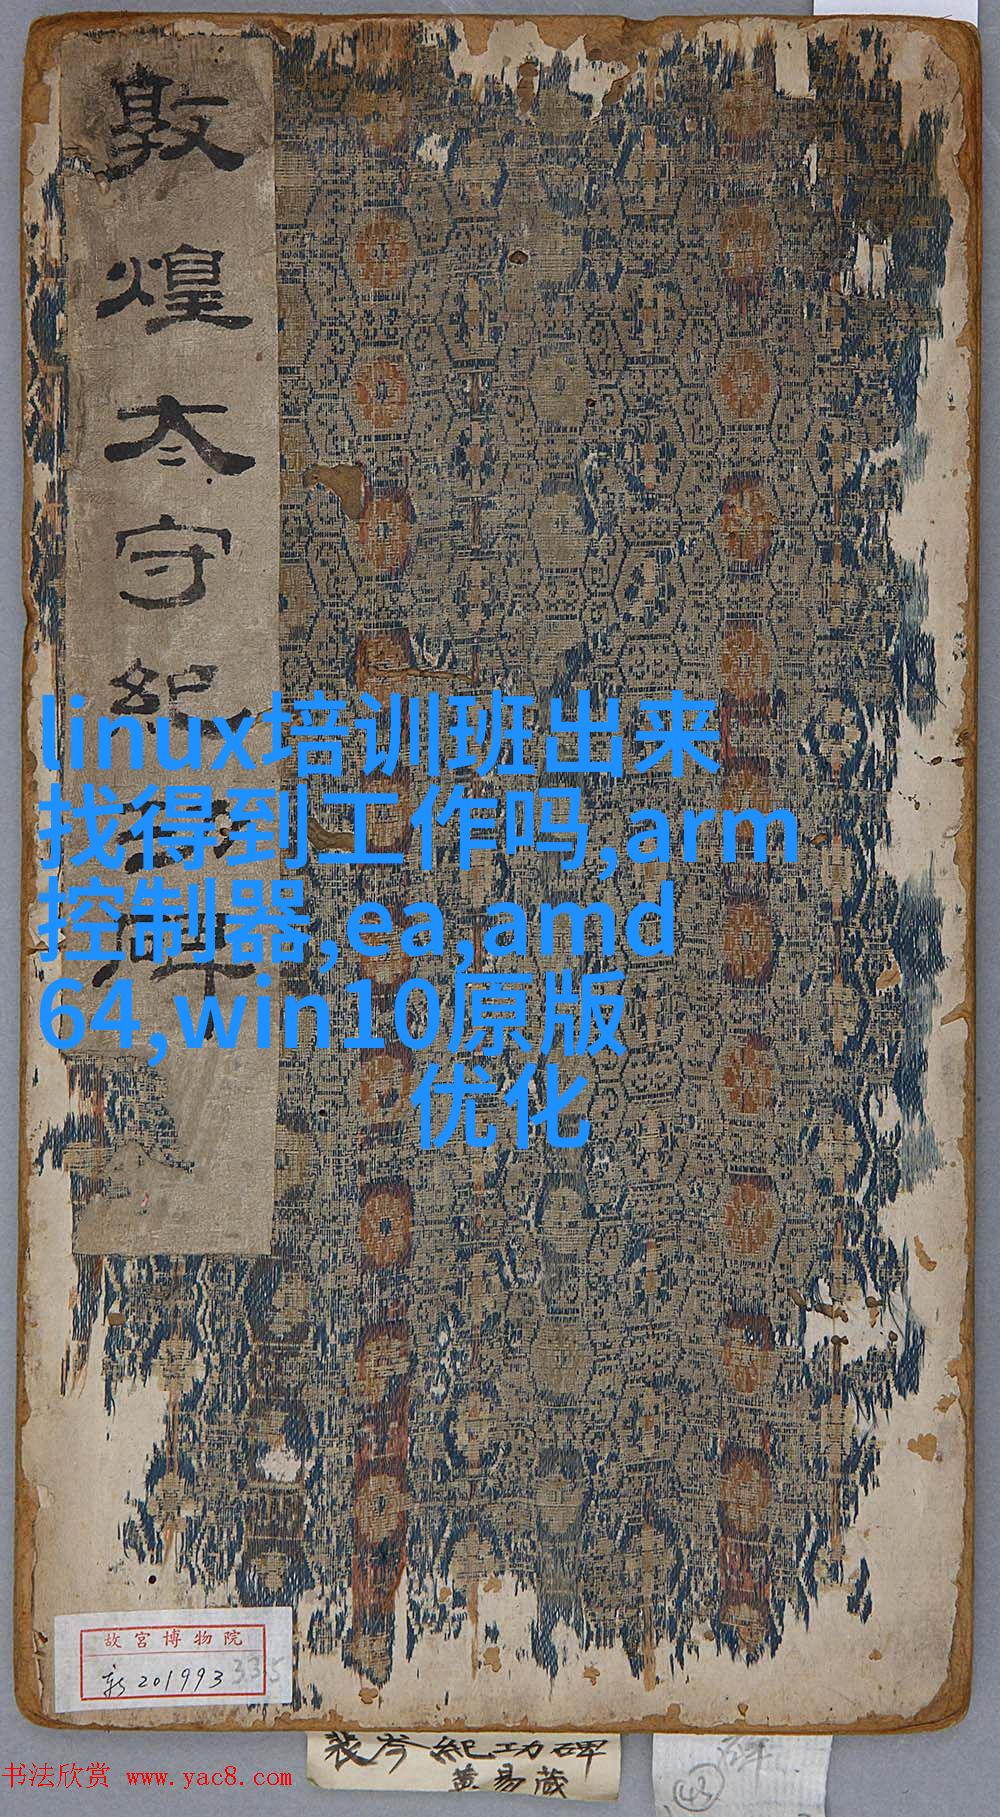 敦煌太守紀
linux培训班出来
找得到工作吗,arm
控制器,ea,amd
64,win10原版
优化
故宫博物院
新201993
335
裴岑紀功碑
黄易藏
43
书法欣赏 www.yac8.com